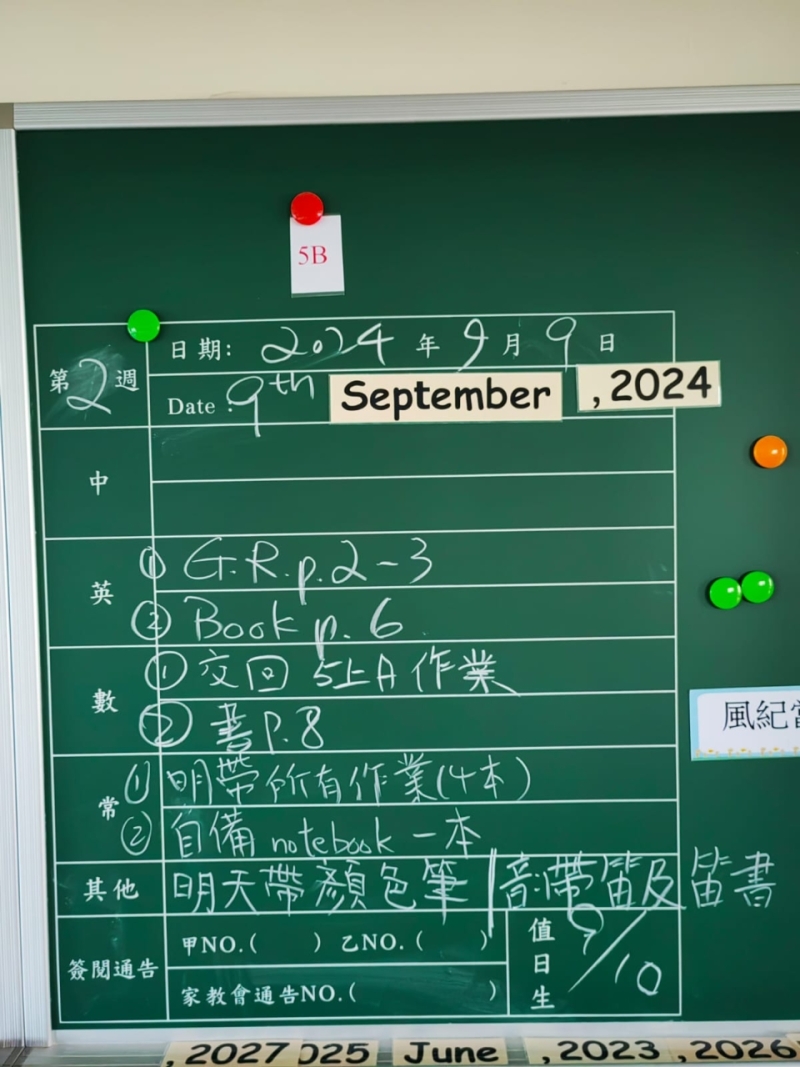 5B
第2週
日期: 2024 年 9 月 9 日
Date : 9th September , 2024
中
英
① G.R. p.2-3
② Book p. 6
數
① 交回 5上A 作業
② 書 P.8
常
① 明帶所有作業(4本)
② 自備 notebook 一本
其他
明天帶顏色筆 | 音:帶笛及笛書
簽閱通告
甲NO.( ) 乙NO.( )
家教會通告NO.( )
值日生
9/10
風紀當
, 2027
025
June
, 2023
, 2026